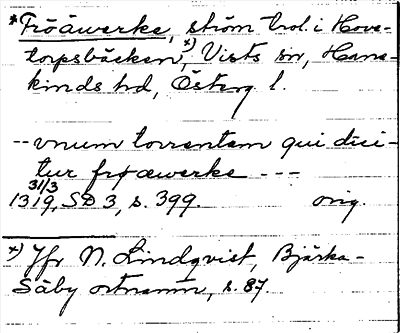 *Fröåwerke, ström trol. i Hove-
torpsbäcken,x) Vists sn, Hane-
kinds hd, Österg l.
-- vnum torrentem qui dici-
tur frøawerke ---
31/3
1319, SD 3, s. 399. orig.
x) Jfr N. Lindqvist, Bjärka-
Säby ortnamn, s. 87.